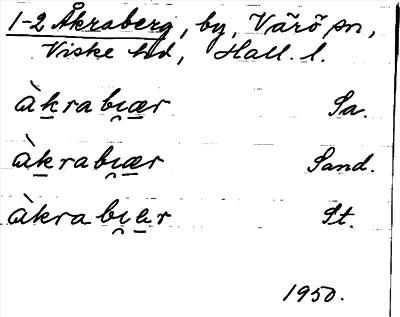 1-2 Åkraberg, by, Värö sn,
Viske hd, Hall. l.
àkrabı̯ær Sa.
àkrabı̯ær Sand.
àkrabı̯ɐr St.
1950.